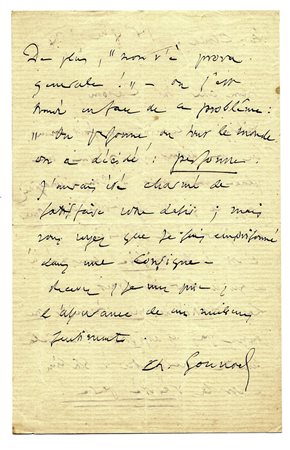 De plus, "non v'è prova
generale!" — on s'est
trouvé en face de ce problème:
"Ou personne ou tout le monde
on a décidé: personne.
J'aurais été charmé de
satisfaire votre désir; mais
vous voyez que je suis emprisonné
dans une Consigne —
Recevez, je vous prie,
l'assurance de mes meilleurs
sentiments.
Ch. Gounod